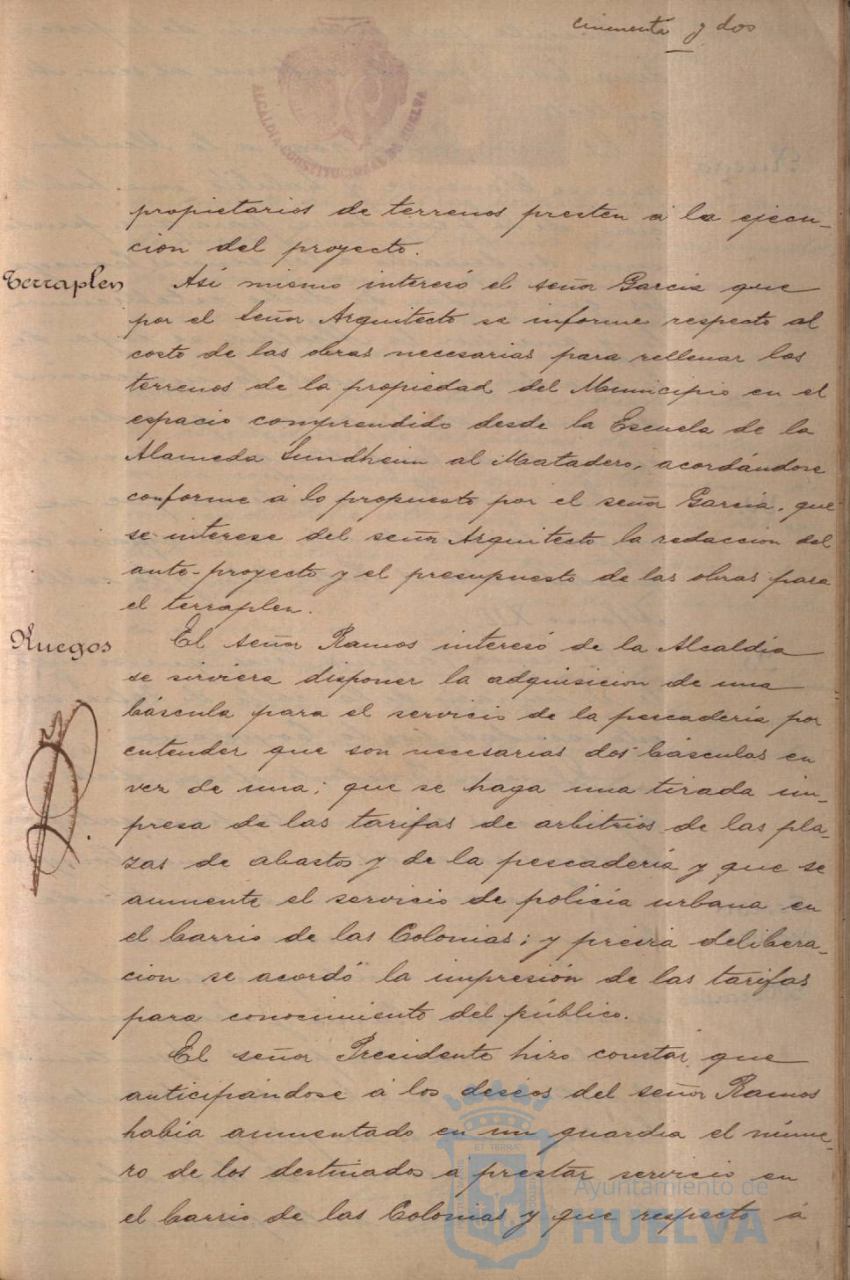 cincuenta y dos
ALCALDIA CONSTITUCIONAL DE HUELVA
propietarios de terrenos presten á la ejecu-
cion del proyecto.
Terraplen
Así mismo interesó el señor Garcia que
por el Señor Arquitecto se informe respecto al
costo de las obras necesarias para rellenar los
terrenos de la propiedad del Municipio en el
espacio comprendido desde la Escuela de la
Alameda Sundheim al Matadero, acordándose
conforme á lo propuesto por el señor Garcia, que
se interese del señor Arquitecto la redaccion del
ante-proyecto y el presupuesto de las obras para
el terraplen.
Ruegos
El señor Ramos interesó de la Alcaldía
se sirviera disponer la adquisicion de una
báscula para el servicio de la pescadería por
entender que son necesarias dos básculas en
vez de una; que se haga una tirada im-
presa de las tarifas de arbitrios de las pla-
zas de abastos y de la pescadería y que se
aumente el servicio de policía urbana en
el barrio de las Colonias; y previa delibera-
cion se acordó la impresión de las tarifas
para conocimiento del público.
El señor Presidente hizo constar que
anticipándose á los deseos del señor Ramos
había aumentado en un guardia el núme-
ro de los destinados a prestar servicio en
el barrio de las Colonias y que respecto á
Ayuntamiento de
HUELVA